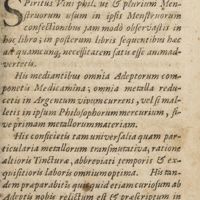 Spiritus Vini phil. ut & plurium Men-
struorum usum in ipsis Menstruorum
confectionibus jam modo observâstis in
hoc libro, in posterum libris sequentibus hac
ac quamcunq; necessitatem satis esse animad-
vertetis.
His mediantibus omnia Adeptorum com-
ponetis Medicamina; omnia metalla redu-
cetis in Argentum vivum currens, vel si mal-
letis in ipsum Philosophorum mercurium, si-
ve primam metallorum materiam.
His conficietis tam universalia quam par-
ticularia metallorum transmutativa, ratione
altioris Tincturæ, abbreviati temporis & ex-
quisitioris laboris omnium optima. His tan-
dem præparabitis quicquid etiam curiosum ab
Adeptis nobis relictum est & præscriptum in